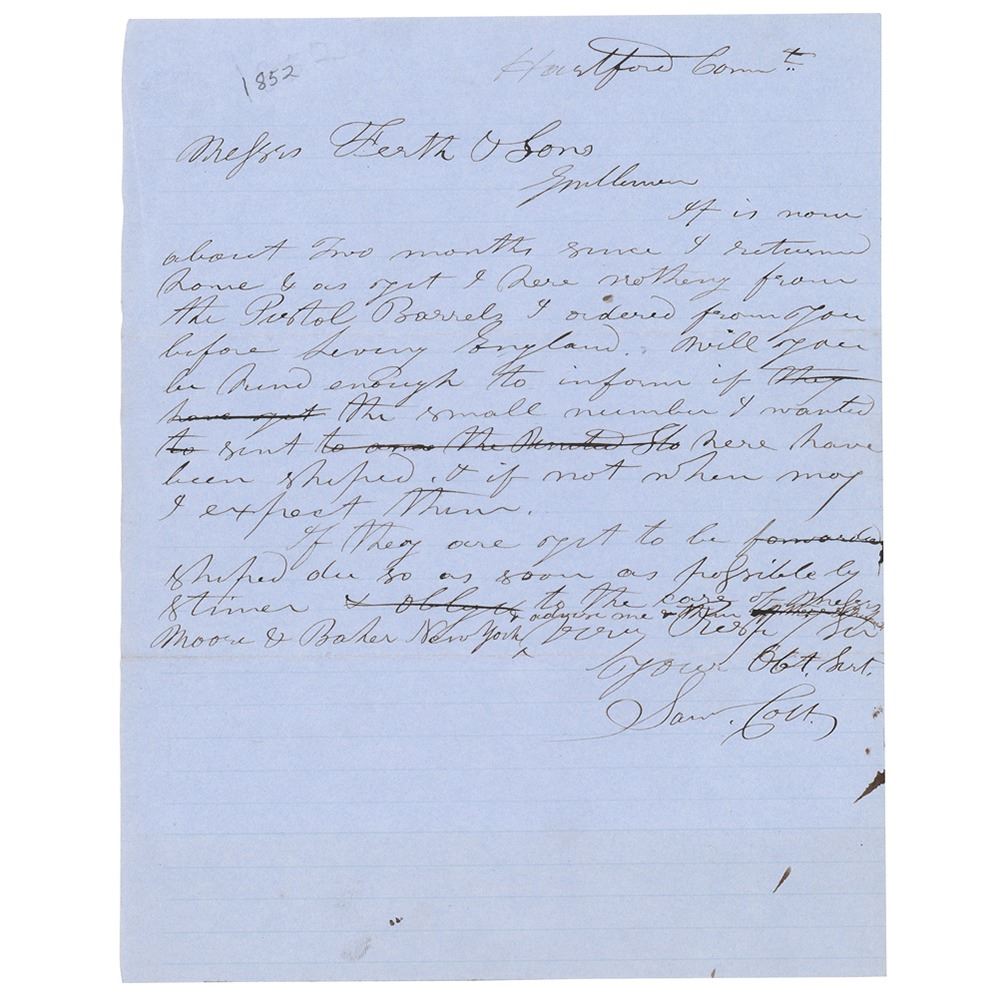 1852
Hartford Connt.
Messrs Ferth & Sons
Gentlemen
It is now
about Two months since I returned
home & as yet I here nothing from
the Pistol Barrels I ordered from you
before leving England. Will you
be kind enough to inform if they
have yet the small number I wanted
to sent to the United Sts here have
been shiped. & if not when may
I expect them.
If they are yet to be forwarded
shiped du so as soon as possible by
stimer & oblige to the care of Messrs
& advise me when
Moore & Baker New York very Resp
Your Obt. Sert.
Sam. Colt.